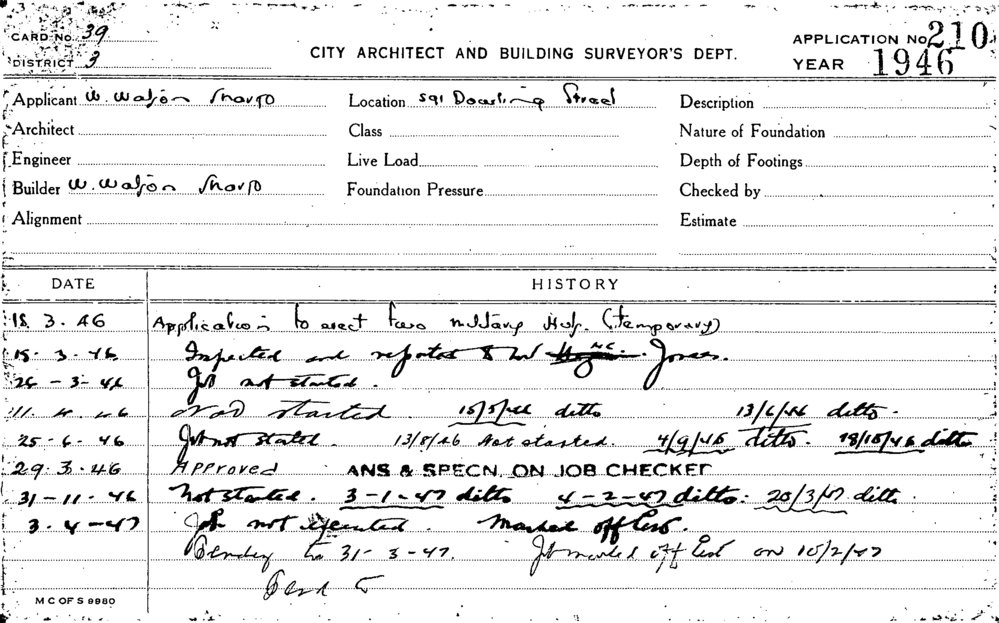 CARD No. 39
DISTRICT 3
CITY ARCHITECT AND BUILDING SURVEYOR'S DEPT.
APPLICATION No 210
YEAR 1946
Applicant W. Watson Sharp Location 591 Dowling Street Description
Architect Class Nature of Foundation
Engineer Live Load Depth of Footings
Builder W. Watson Sharp Foundation Pressure Checked by
Alignment Estimate
DATE HISTORY
18. 3. 46 Application to erect two military Huts. (temporary)
15. 3. 46 Inspected and reported to Mr Jones.
26 - 3 - 46 Job not started.
11. 4. 46 Not started. 15/5/46 ditto 13/6/46 ditto.
25 - 6 - 46 Job not started. 13/8/46 Not started. 4/9/46 ditto. 18/10/46 ditto
29. 3. 46 Approved ANS & SPECN. ON JOB CHECKED
31 - 11 - 46 Not started. 3-1-47 ditto 4-2-47 ditto. 20/3/47 ditto.
3. 4 - 47 Job not executed. Marked off list.
to 31-3-47. Job marked off list on 10/2/47
M C OF S 9980